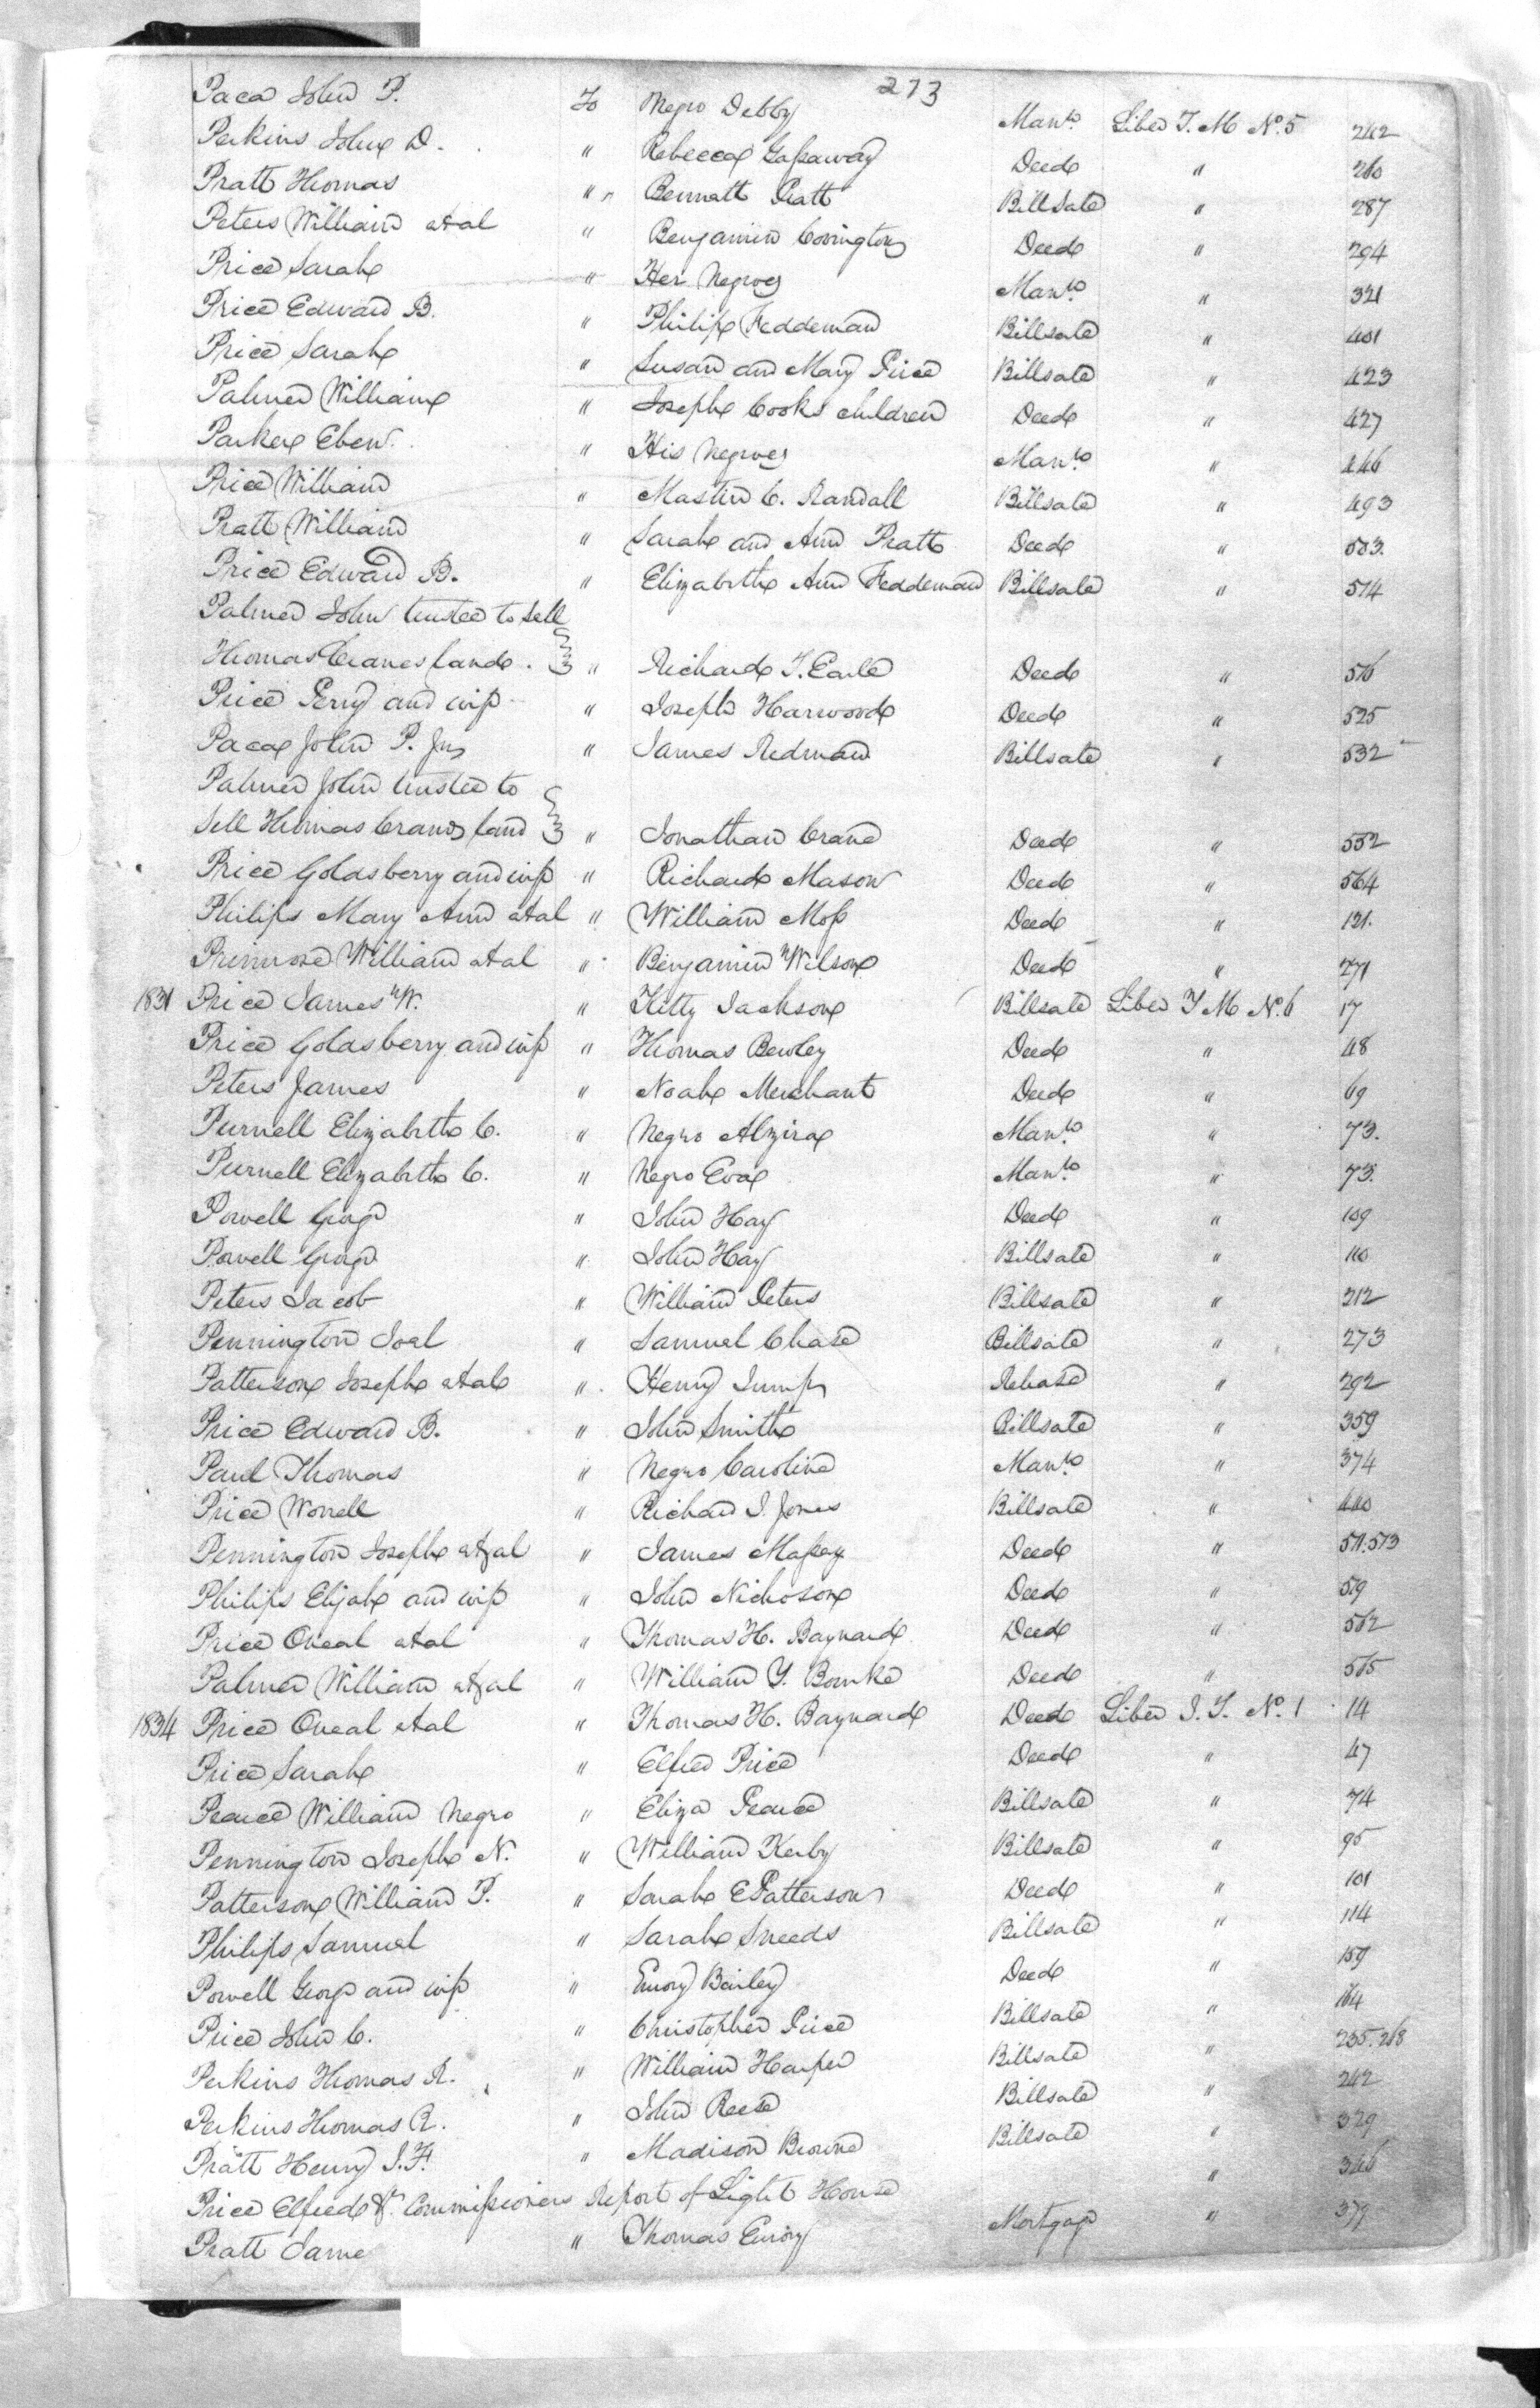 273
Paca John P. To Negro Debby Manto. Liber T. M No. 5 242
Perkins John D. " Rebecca Gassaway Deed " 260
Pratt Thomas " Bennett Pratt BillSale " 287
Peters William et al " Benjamin Covington Deed " 294
Price Sarah " Her Negroes Manto. " 321
Price Edward B. " Philip Feddeman Billsale " 401
Price Sarah " Susan and Mary Price Billsale " 423
Palmer William " Joseph Cooks children Deed " 427
Parker Eben. " His Negroes Manto. " 446
Price William " Mastin C. Randall Billsale " 493
Pratt William " Sarah and Ann Pratt Deed " 503.
Price Edward B. " Elizabeth Ann Feddeman Billsale " 514
Palmer John trustee to sell
Thomas Cranes land. " Richard T. Earle Deed " 516
Price Perry and wife " Joseph Harwood Deed " 525
Paca John P. Jur " James Redman Billsale " 532
Palmer John trustee to
Sell Thomas Cranes land " Jonathan Crane Deed " 552
Price Goldsberry and wife " Richard Mason Deed " 564
Philips Mary Ann et al " William Moss Deed " 121.
Primrose William et al " Benjamin Wilson Deed " 271
1831 Price James W. " Kitty Jackson Billsale Liber T M No. 6 17
Price Goldsberry and wife " Thomas Bewley Deed " 48
Peters James " Noah Merchant Deed " 69
Purnell Elizabeth C. " Negro Alzira Manto. " 73.
Purnell Elizabeth C. " Negro Eva Manto. " 73.
Powell George " John Hay Deed " 109
Powell George " John Hay Billsale " 110
Peters Jacob " William Peters Billsale " 212
Pennington Joel " Samuel Chase Billsale " 273
Patterson Joseph et al " Henry Jump Release " 292
Price Edward B. " John Smith Billsale " 359
Paul Thomas " Negro Caroline Manto. " 374
Price Worrell " Richard I. Jones Billsale " 440
Pennington Joseph et al " James Massey Deed " 511.513
Philips Elijah and wife " John Nicholson Deed " 519
Price Oneal et al " Thomas H. Baynard Deed " 562
Palmer William et al " William Y. Bourke Deed " 565
1834 Price Oneal et al " Thomas H. Baynard Deed Liber J. T. No. 1 14
Price Sarah " Elfred Price Deed " 47
Pearce William Negro " Eliza Pearce Billsale " 74
Pennington Joseph N. " William Kerby Billsale " 95
Patterson William P. " Sarah E Patterson Deed " 101
Philips Samuel " Sarah Sneeds Billsale " 114
Powell George and wife " Emory Bailey Deed " 159
Price John C. " Christopher Price Billsale " 164
Perkins Thomas R. " William Harper Billsale " 235.268
Perkins Thomas R. " John Reese Billsale " 242
Pratt Henry J. F. " Madison Browne Billsale " 329
Price Elfred &c. Commissioners Report of Light House " 346
Pratt Same " Thomas Emory Mortgage " 379